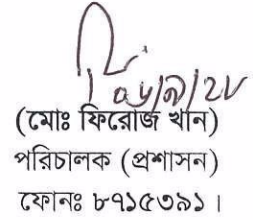 (মোঃ ফিরোজ খান)
পরিচালক (প্রশাসন)
ফোনঃ ৮৭১৫৩৯১।